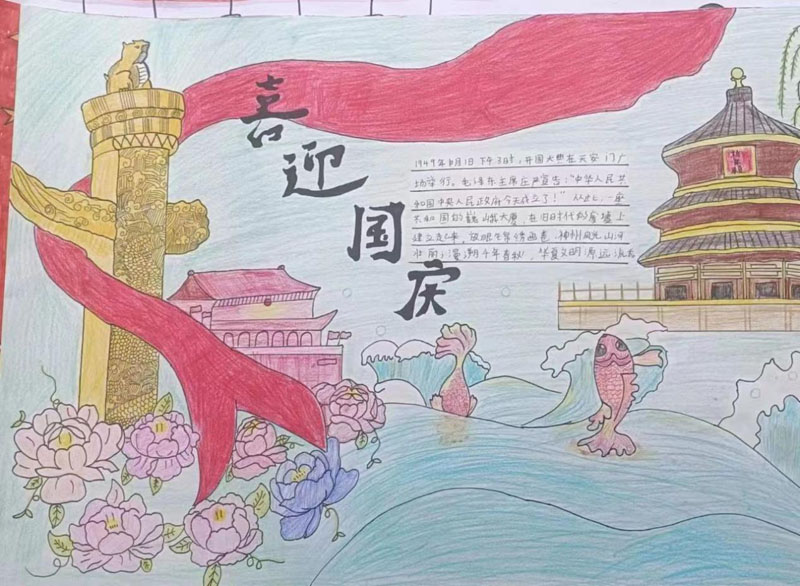 喜迎国庆
1949年10月1日下午3时,开国大典在天安门广
场举行。毛泽东主席庄严宣告:"中华人民共
和国中央人民政府今天成立了!"从此,一座
共和国的巍峨大厦,在旧时代的废墟上
建立起来,放眼
神州风光山河
壮丽;漫溯千年春秋,华夏文明源远流长